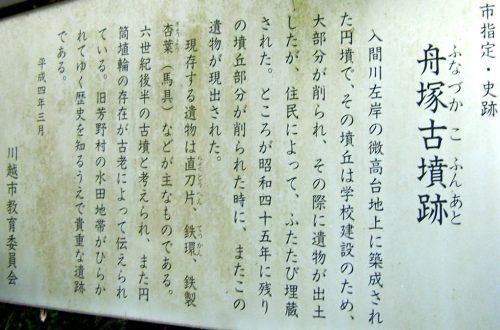 市指定・史跡
ふなづか こ ふんあと
舟塚古墳跡
入間川左岸の微高台地上に築成され
た円墳で、その墳丘は学校建設のため、
大部分が削られ、その際に遺物が出土
したが、住民によって、ふたたび埋蔵
された。ところが昭和四十五年に残り
の墳丘部分が削られた時に、またこの
遺物が現出された。
現存する遺物は直刀片、鉄環、鉄製
ちょくとうへん てっかん
杏葉(馬具)などが主なものである。
ぎょうよう
六世紀後半の古墳と考えられ、また円
筒埴輪の存在が古老によって伝えられ
ている。旧芳野村の水田地帯がひらか
れてゆく歴史を知るうえで貴重な遺跡
である。
平成四年三月
川越市教育委員会